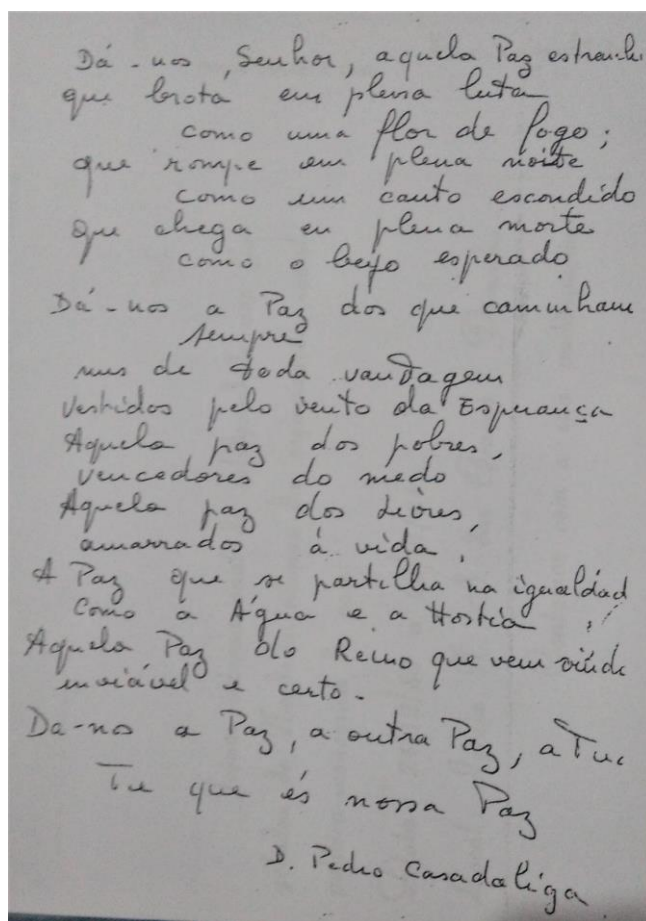 Dá-nos, Senhor, aquela Paz estranh
que brota em plena luta
como uma flor de fogo;
que rompe em plena noite
como um canto escondido
que chega en plena morte
como o beijo esperado
Dá-nos a Paz dos que caminham
sempre
nus de toda vantagem
vestidos pelo vento da Esperança
Aquela paz dos pobres,
vencedores do medo
Aquela paz dos livres,
amarrados à vida,
A Paz que se partilha na igualdad
como a Água e a Hostia
Aquela Paz do Reino que vem vind
inviável e certo.
Da-nos a Paz, a outra Paz, a Tua
Tu que és nossa Paz
D. Pedro Casadaliga